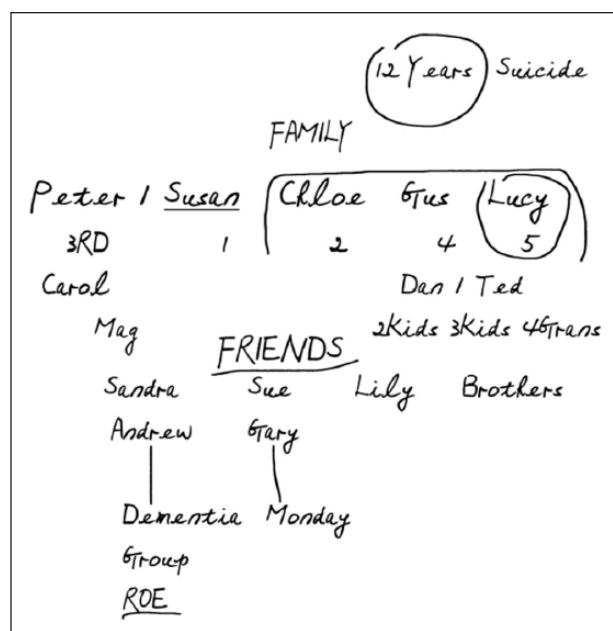 12 Years Suicide
FAMILY
Peter / Susan Chloe Gus Lucy
3RD 1 2 4 5
Carol Dan / Ted
Mag 2Kids 3Kids 4GTrans
FRIENDS
Sandra Sue Lily Brothers
Andrew Gary
Dementia Monday
Group
ROE